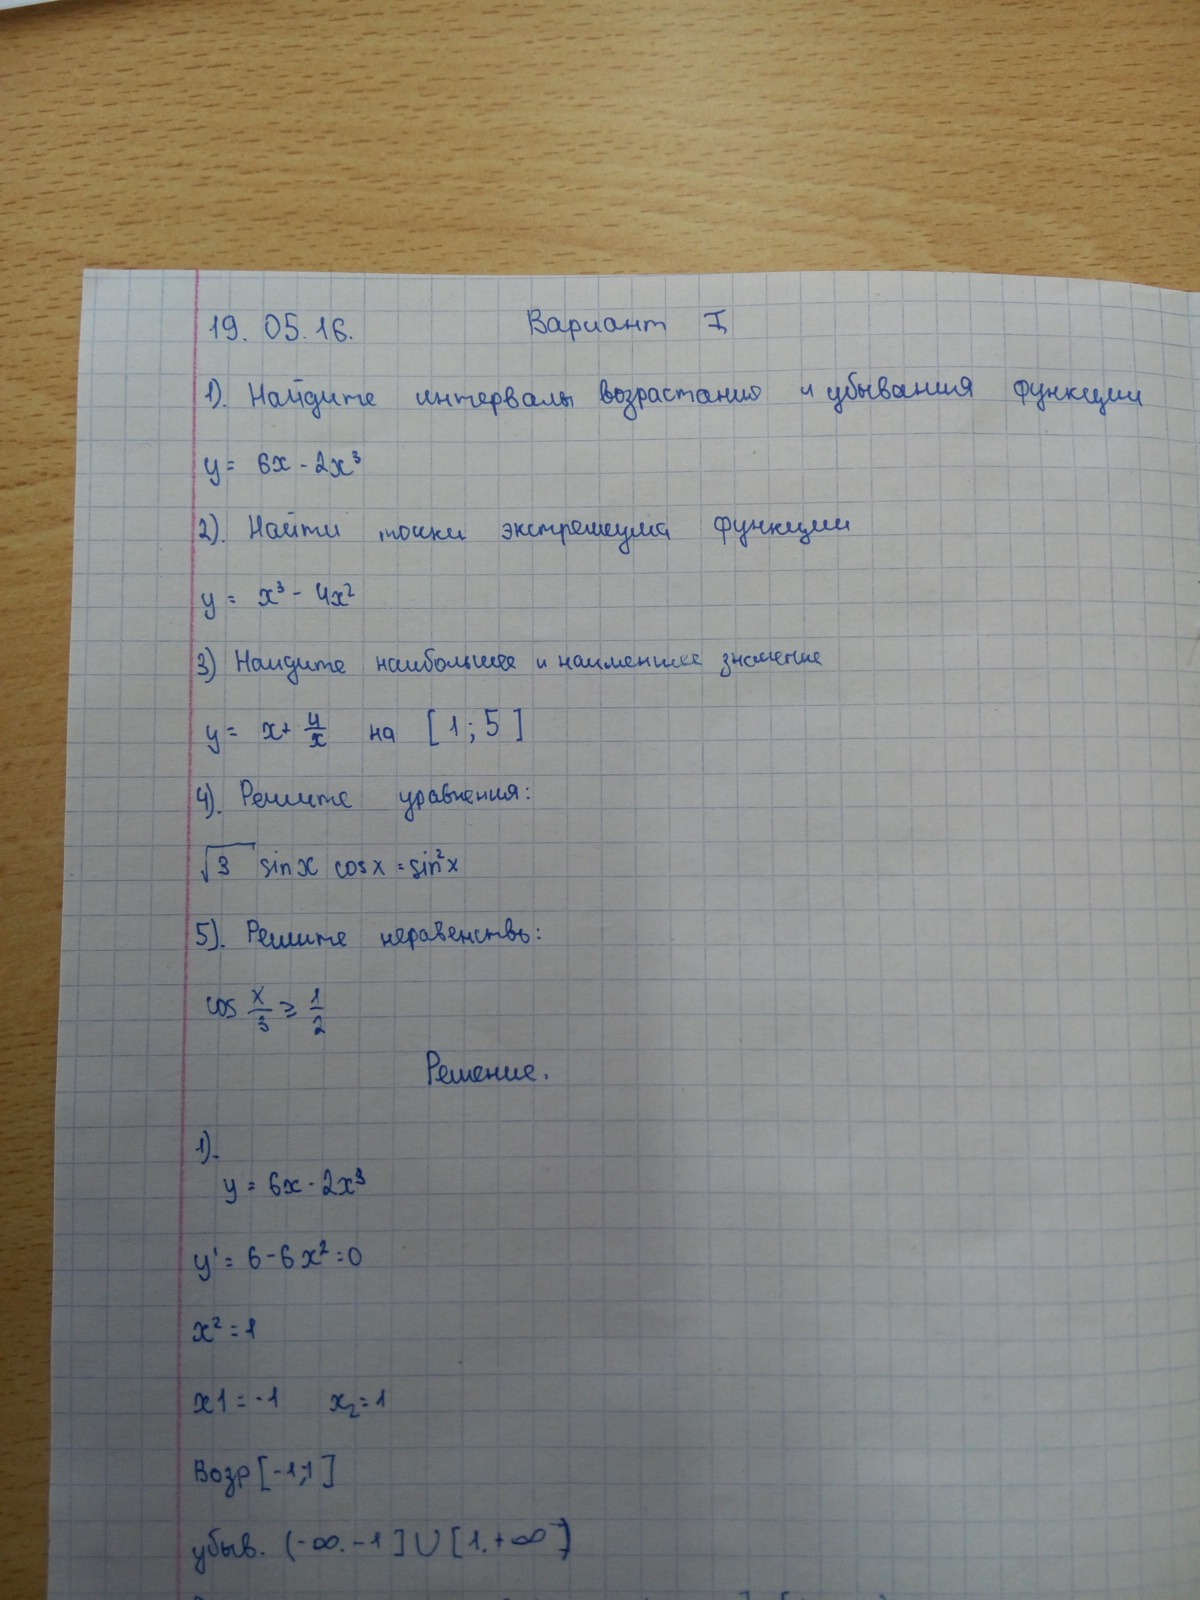 19. 05. 16. Вариант I
1). Найдите интервалы возрастания и убывания функции
y = 6x - 2x³
2). Найти точки экстремума функции
y = x³ - 4x²
3) Найдите наибольшее и наименшее значение
y = x + 4/x на [1; 5]
4). Решите уравнения:
√3 sin x cos x = sin²x
5). Решите неравенства:
cos x/3 ≥ 1/2
Решение.
1).
y = 6x - 2x³
y' = 6 - 6x² = 0
x² = 1
x1 = -1 x₂ = 1
Возр [-1; 1]
убыв. (-∞. -1] ∪ [1. +∞)